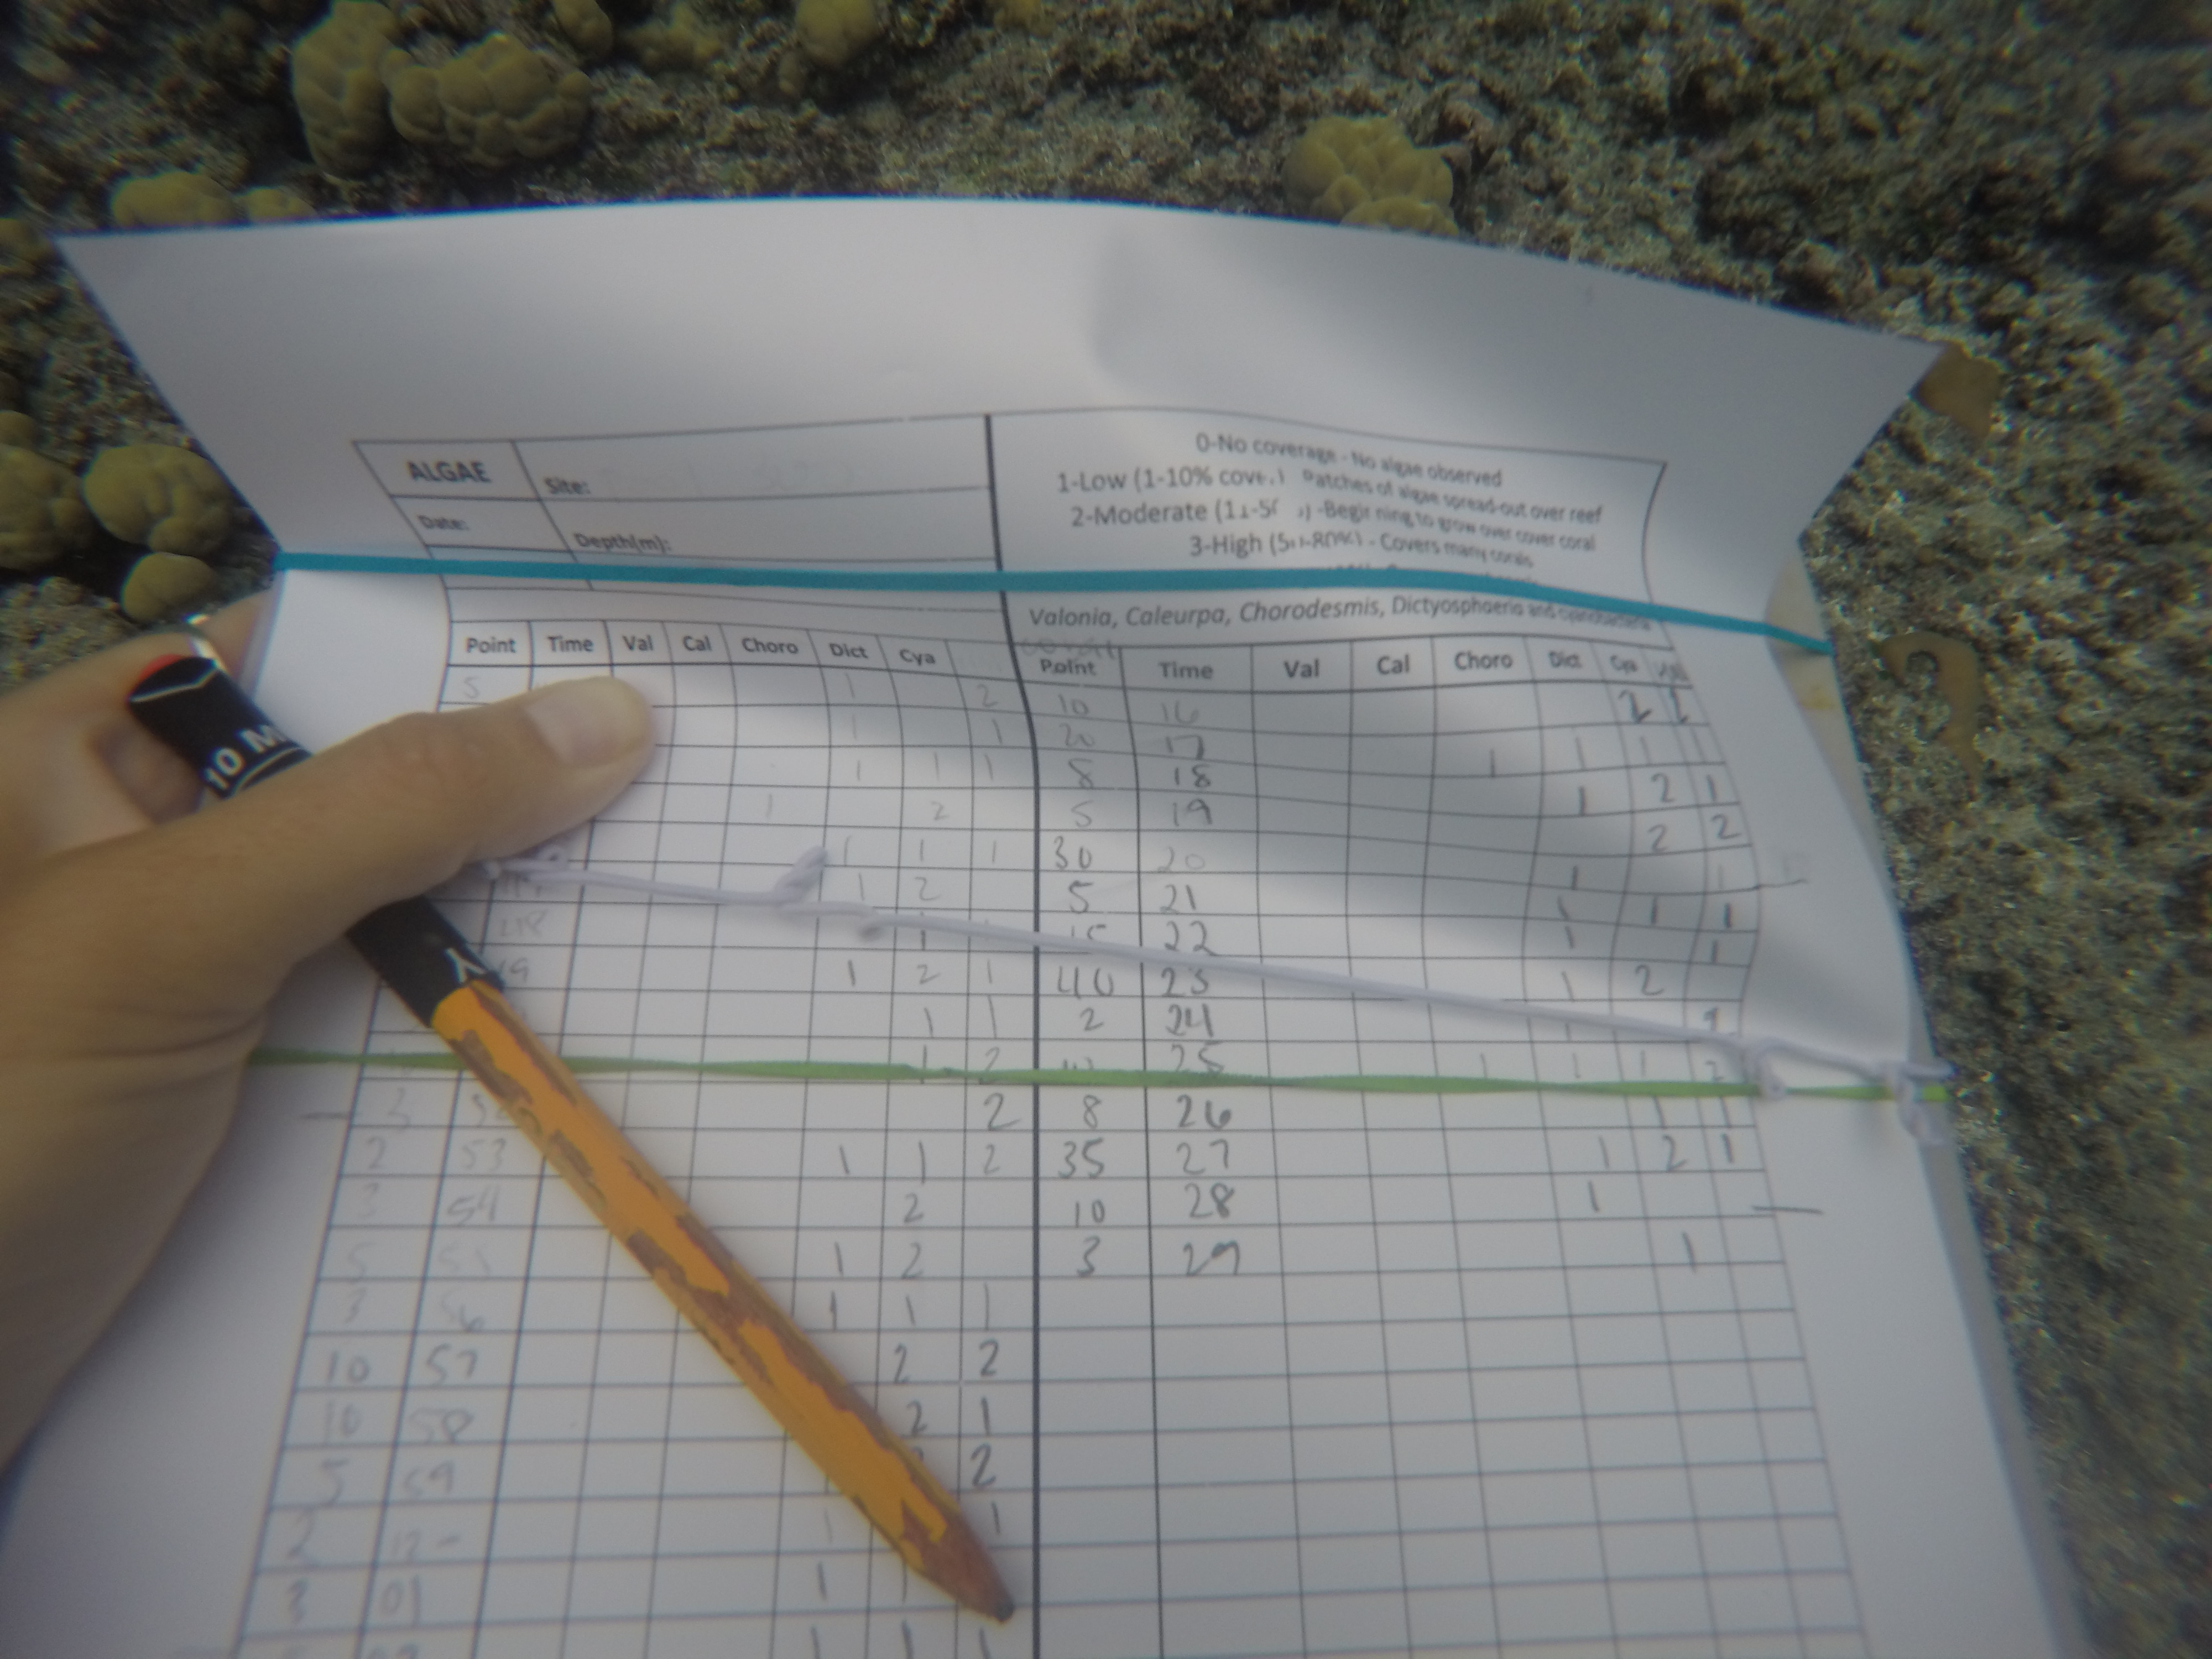 ALGAE Site:
Date: Depth(m):
0-No coverage - No algae observed
1-Low (1-10% Patches of algae spread-out over reef
2-Moderate to grow over cover coral
3-High - Covers many corals
Valonia, Caleurpa, Chorodesmis, Dictyosphaeria and
Point Time Val Cal Choro Dict Cya
5 1 2
1 1
1 1 1
1 2
1 1 1
1 2
1
1 2 1
1 1
1 2
3 2
2 53 1 1 2
3 54 2
5 55 1 2
3 56 1 1 1
10 57 2 2
10 58 2 1
5 59 2
2 12- 1 1
3 01 1
1 1 1
Point Time Val Cal Choro Dict Cya
10 16 2 2
20 17 1 1 1 1
8 18 1 2 1
5 19 2 2
30 20 1 1
5 21 1 1 1
15 22 1 1
40 23 1 2
2 24 1
25 1 1 1 2
8 26 1 1
35 27 1 2 1
10 28 1
3 29 1
10